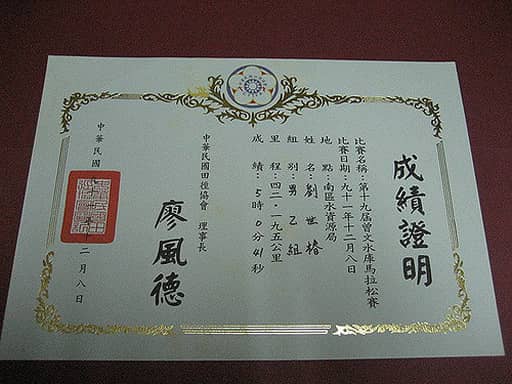 成績證明
比賽名稱：第十九屆曾文水庫馬拉松賽
比賽日期：九十一年十二月八日
地點：南區水資源局
姓名：劉世
組別：男乙組
里程：四二．一九五公里
成績：5時0分41秒
中華民國田徑協會 理事長
廖風德
中華民國九十一年十二月八日